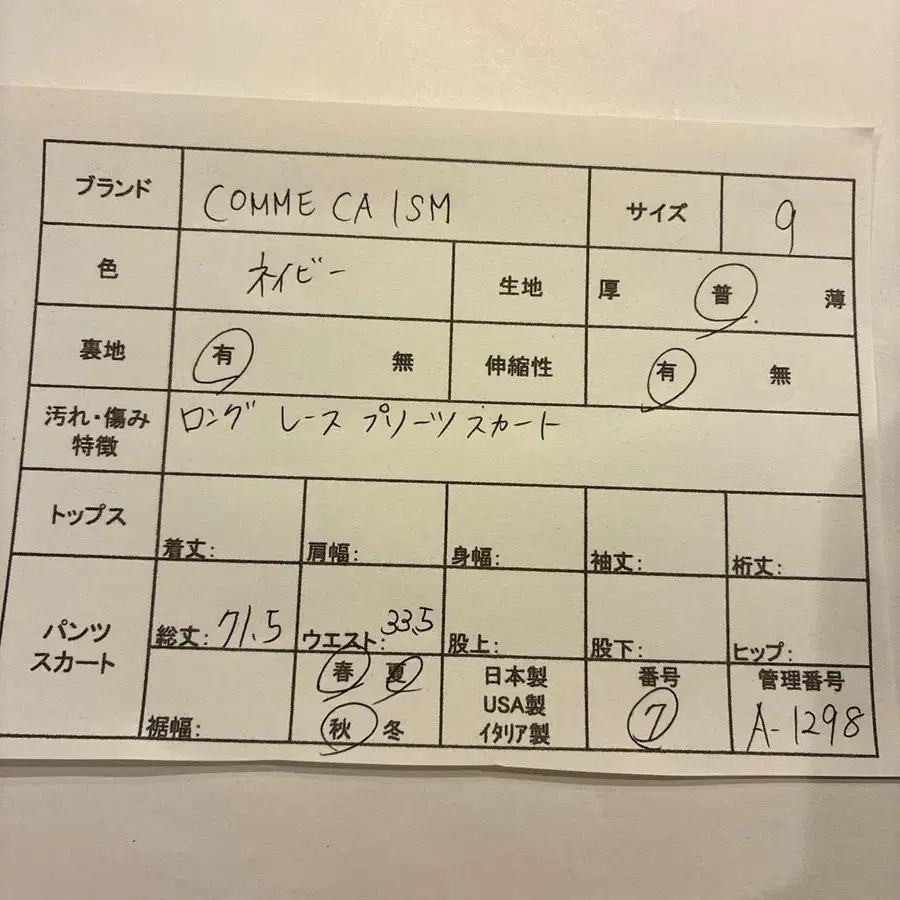 ブランド COMME CA ISM サイズ 9
色 ネイビー 生地 厚 普 薄
裏地 有 無 伸縮性 有 無
汚れ・傷み
特徴
ロング レース プリーツスカート
トップス 着丈: 肩幅: 身幅: 袖丈: 裄丈:
パンツ
スカート
総丈: 71.5 ウエスト: 33.5 股上: 股下: ヒップ:
裾幅:
春 夏
秋 冬
日本製
USA製
イタリア製
番号
7
管理番号
A-1298